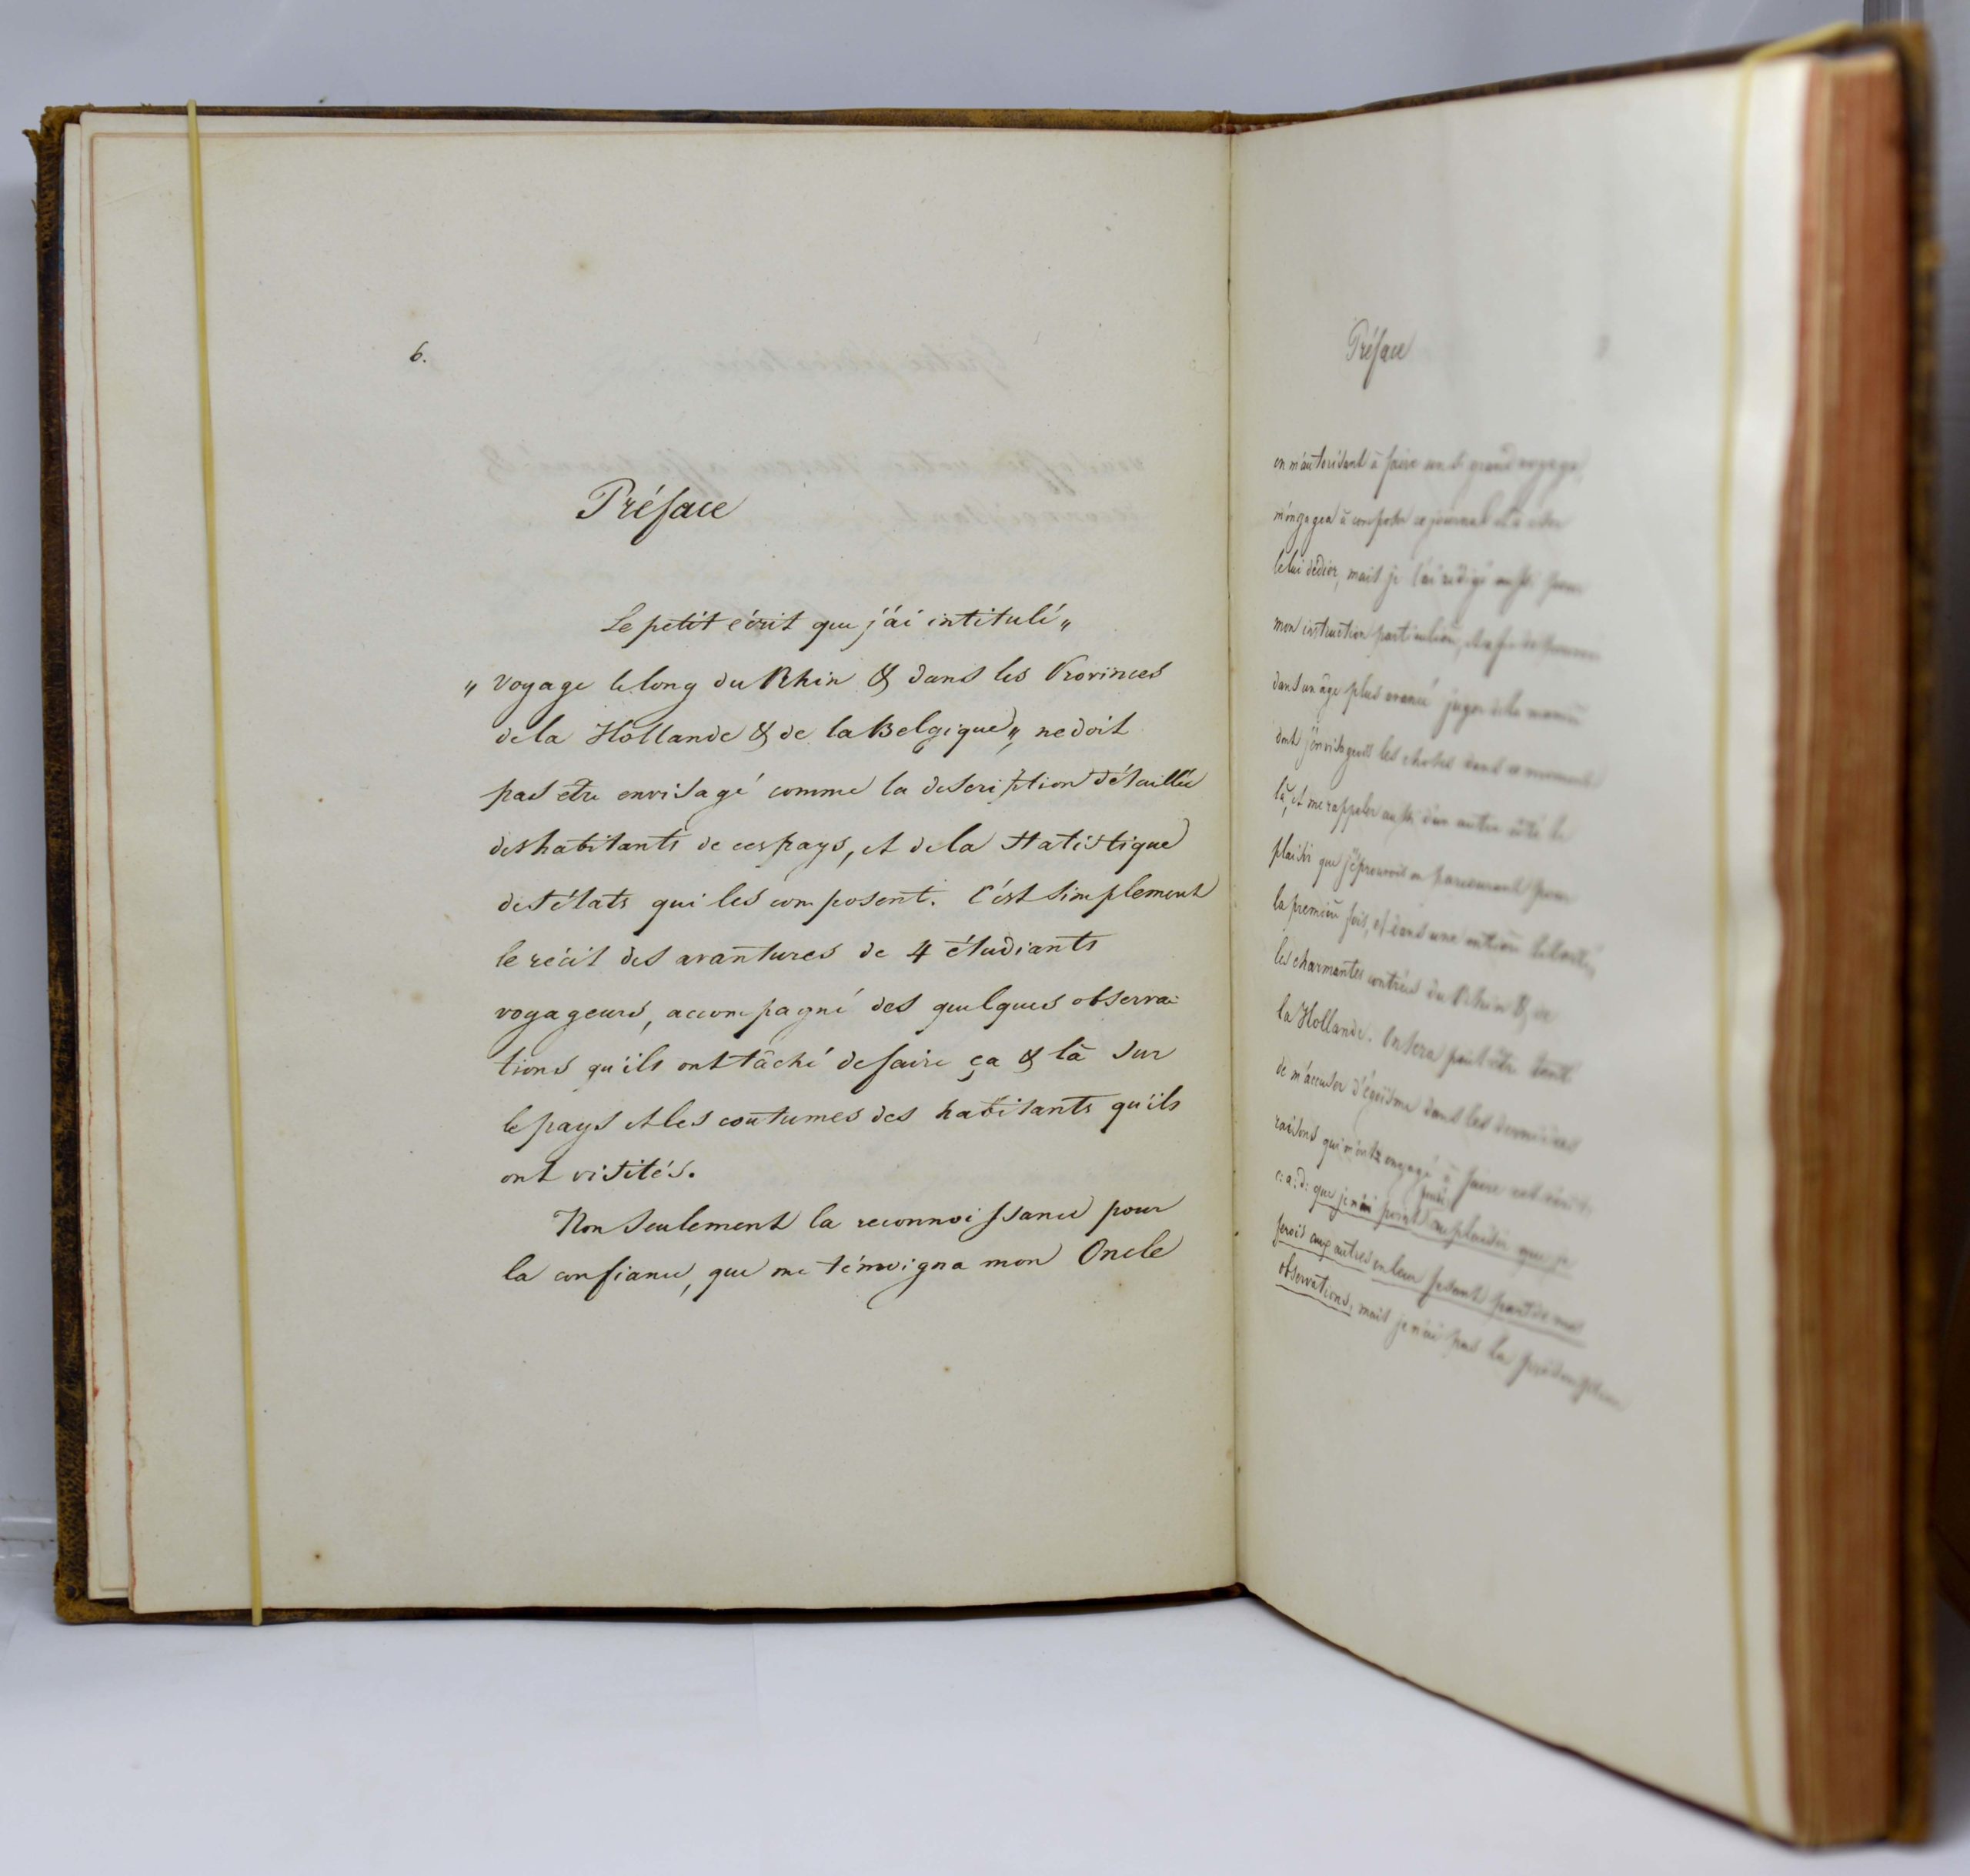 6.
Préface
Le petit écrit que j'ai intitulé „
„ Voyage le long du Rhin & dans les Provinces
de la Hollande & de la Belgique „ ne doit
pas etre envisagé comme la description détaillée
des habitants de ces pays, et de la statistique
des états qui les composent. C'est simplement
le récit des avantures de 4 étudiants
voyageurs, accompagné des quelques observa-
tions qu'ils ont tâché de faire ça & là sur
le pays et les coutumes des habitants qu'ils
ont visités.
Non seulement la reconnoissance pour
la confiance, que me témoigna mon Oncle
Préface
en m'autorisant à faire un si grand voyage,
m'engagea à composer ce journal et à
le lui dédier, mais je l'ai redigé aussi pour
mon instruction particulière, afin de pouvoir
dans un âge plus avancé juger de la manière
dont j'envisageois les choses dans ce moment
là, et me rappeler aussi d'un autre côté le
plaisir que j'éprouvois en parcourant pour
la première fois, et dans une entière liberté,
les charmantes contrées du Rhin & de
la Hollande. On sera peut être tenté
de m'accuser d'égoïsme dans les dernières
raisons qui m'ont engagé à faire cet écrit,
c: a: d: que je n'ai point pensé au plaisir que je
ferois aux autres en leur fesant part de mes
observations, mais je n'ai pas la